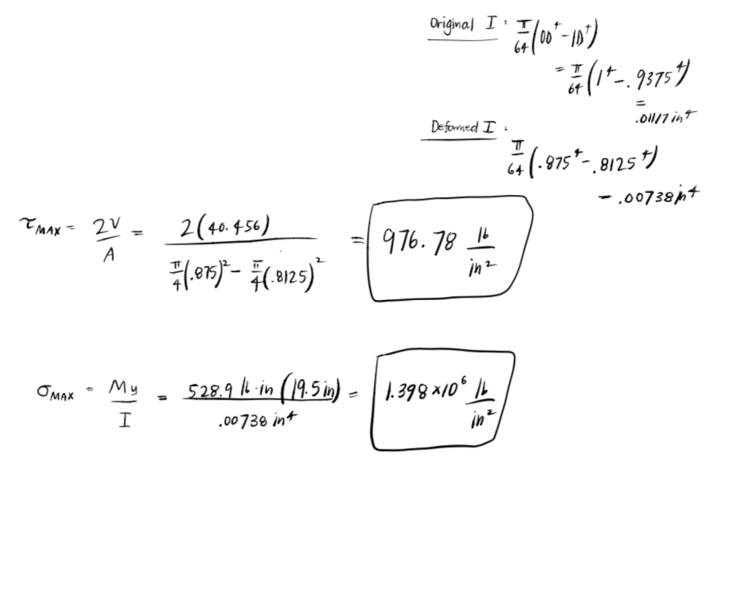 Original I : π/64 (OD⁴ - ID⁴)
= π/64 (1⁴ - .9375⁴)
=
.01117 in⁴
Deformed I :
π/64 (.875⁴ - .8125⁴)
= .00738 in⁴
τMAX = 2V/A = 2(40.456) / (π/4(.875)² - π/4(.8125)²) = 976.78 lb/in²
σMAX = My/I = 528.9 lb·in (19.5in) / .00738 in⁴ = 1.398×10⁶ lb/in²